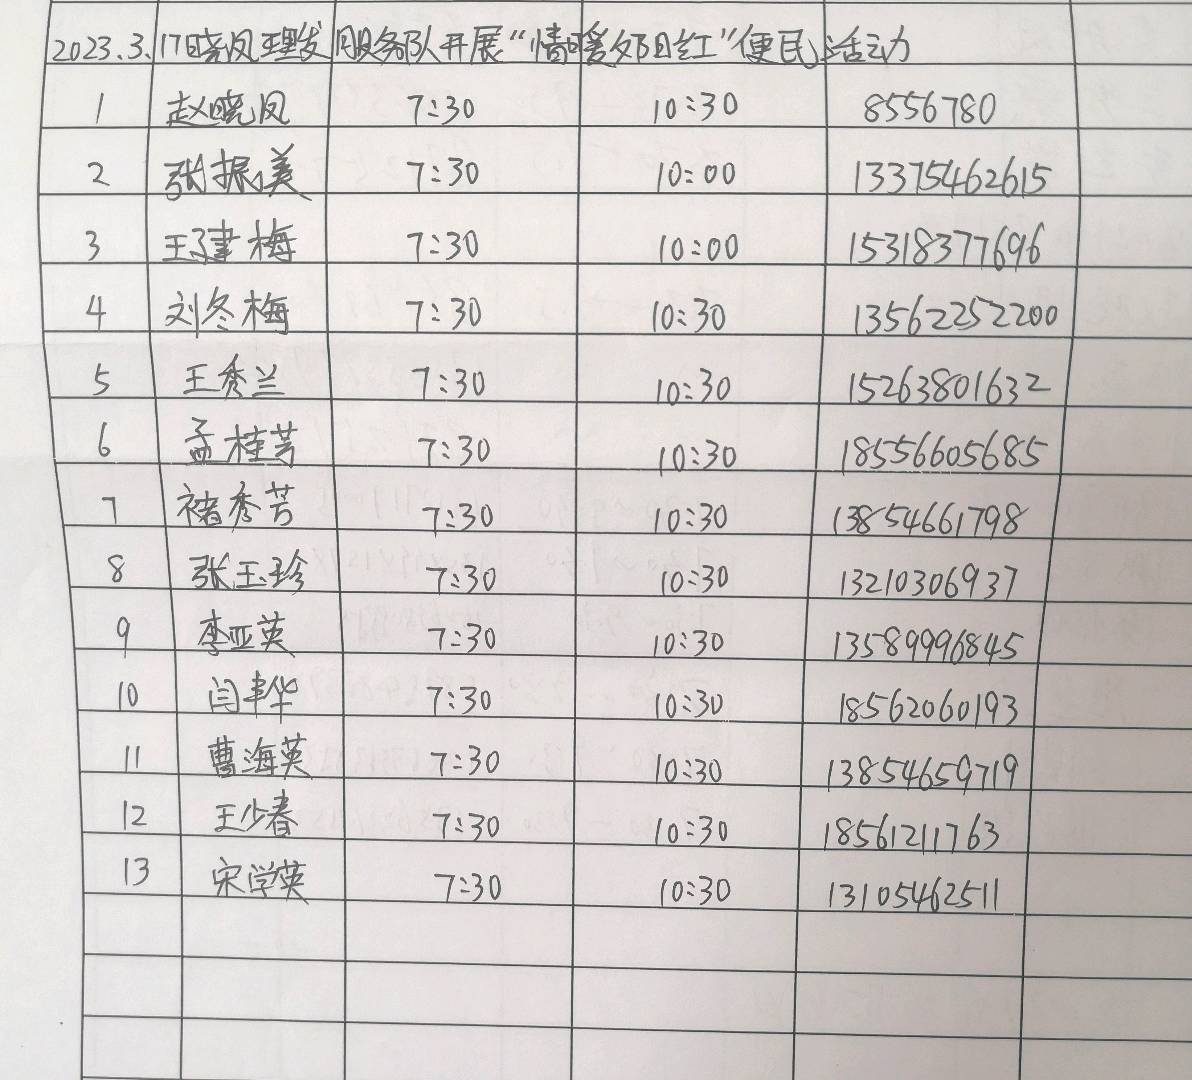 2023.3.17晓凤理发服务队开展“情暖夕阳红”便民活动
1 赵晓凤 7:30 10:30 8556780
2 张振美 7:30 10:00 13375462615
3 王建梅 7:30 10:00 15318377696
4 刘冬梅 7:30 10:30 13562252200
5 王秀兰 7:30 10:30 15263801632
6 孟桂芳 7:30 10:30 18556605685
7 褚秀芳 7:30 10:30 13854661798
8 张玉珍 7:30 10:30 13210306937
9 李亚英 7:30 10:30 13589996845
10 闫丰华 7:30 10:30 18562060193
11 曹海英 7:30 10:30 13854659719
12 王少春 7:30 10:30 18561211763
13 宋学英 7:30 10:30 13105462511